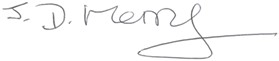 J. D. Merry